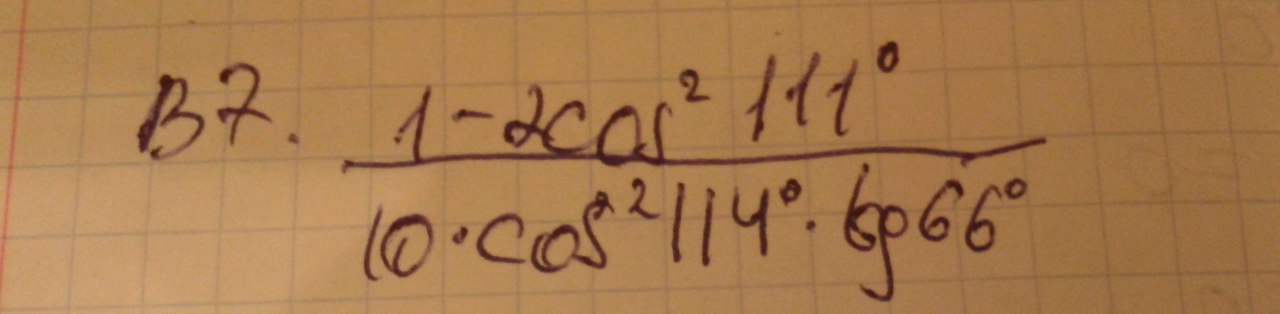 B7. 1-2cos² 111°
10·cos² 114°·tg66°